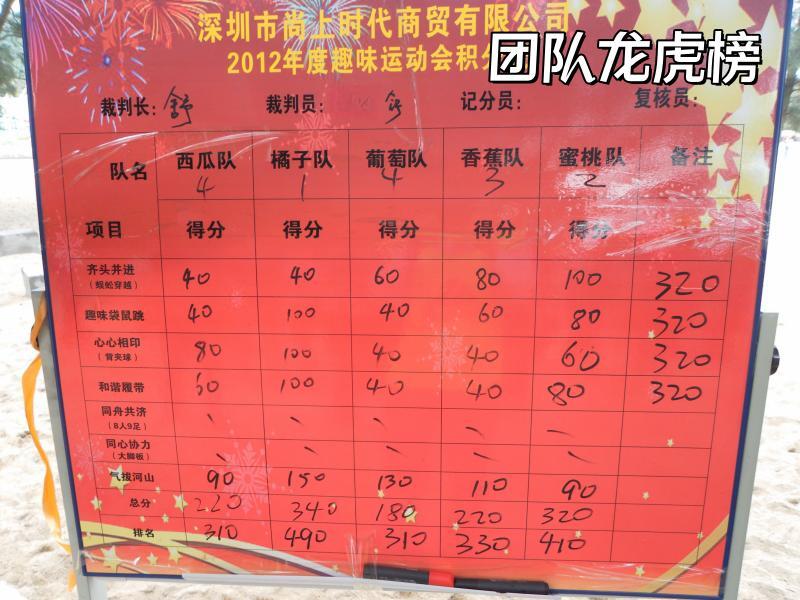 深圳市尚上时代商贸有限公司
2012年度趣味运动会积分
团队龙虎榜
裁判长：舒 裁判员： 记分员： 复核员：
队名 西瓜队 橘子队 葡萄队 香蕉队 蜜桃队 备注
4 1 4 3 2
项目 得分 得分 得分 得分 得分
齐头并进 40 40 60 80 100 320
（蜈蚣穿越）
趣味袋鼠跳 40 100 40 60 80 320
心心相印 80 100 40 40 60 320
（背夹球）
和谐履带 60 100 40 40 80 320
同舟共济 、 、 、 、 、
（8人9足）
同心协力 、 、 、 、 、
（大脚板）
气拔河山 90 150 130 110 90
总分 220 340 180 220 320
排名 310 490 310 330 410